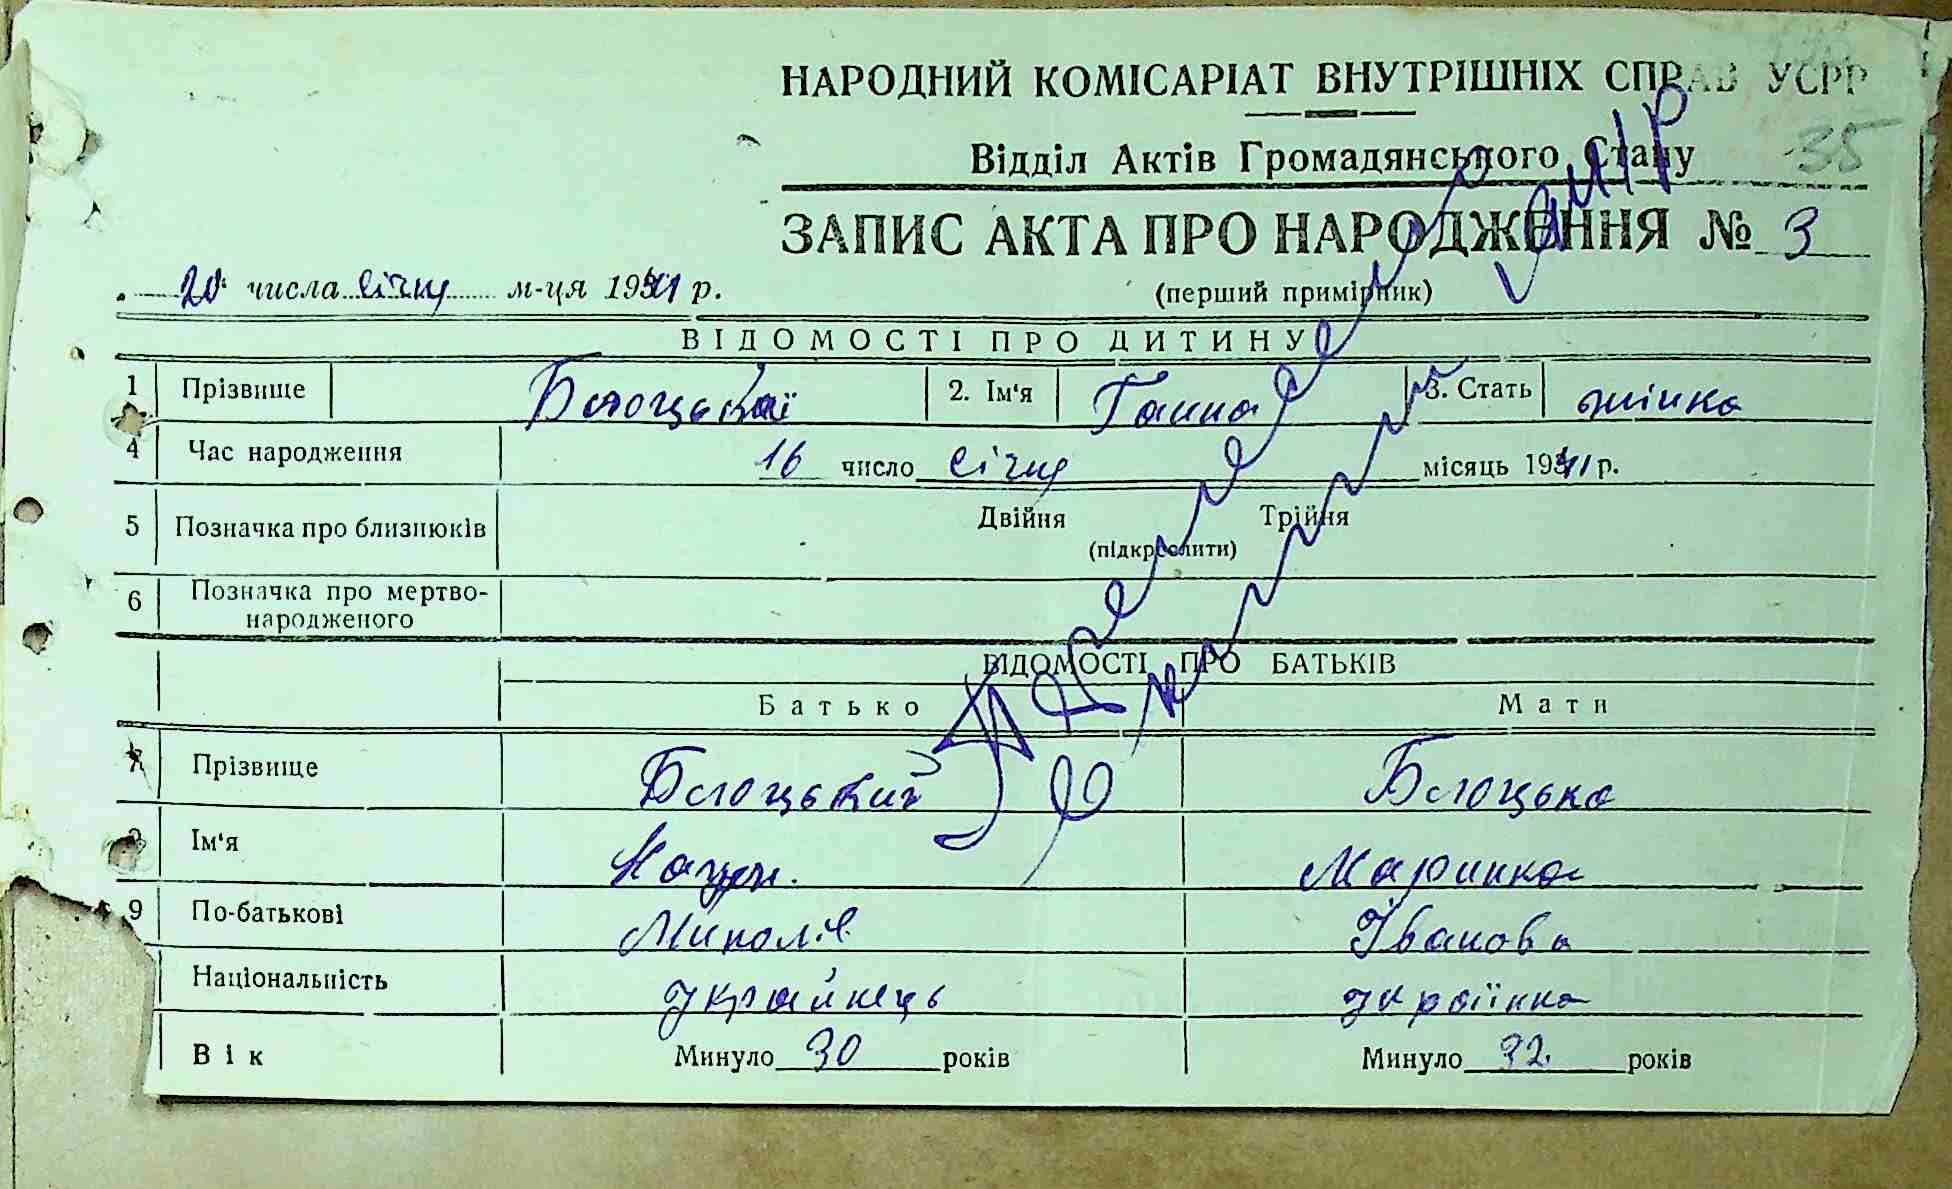 НАРОДНИЙ КОМІСАРІАТ ВНУТРІШНІХ СПРАВ УСРР
35
Відділ Актів Громадянського Стану
ЗАПИС АКТА ПРО НАРОДЖЕННЯ № 3
20 числа січня м-ця 1941 р.
(перший примірник)
ВІДОМОСТІ ПРО ДИТИНУ
1 Прізвище Білоцької 2. Ім'я Ганна 3. Стать жінка
4 Час народження 16 число січня місяць 1941 р.
5 Позначка про близнюків Двійня Трійня
(підкреслити)
6 Позначка про мертво-
народженого
ВІДОМОСТІ ПРО БАТЬКІВ
Батько Мати
7 Прізвище Білоцький Білоцька
Ім'я Маринка
9 По-батькові Микол. Іванова
Національність українець українка
Вік Минуло 30 років Минуло 32 років